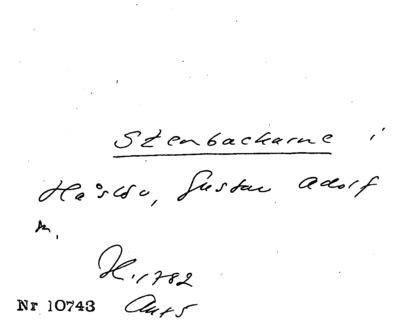 Stenbackarne i
Håslöv, Gustav Adolf
M.
H. 1782
Nr 10743